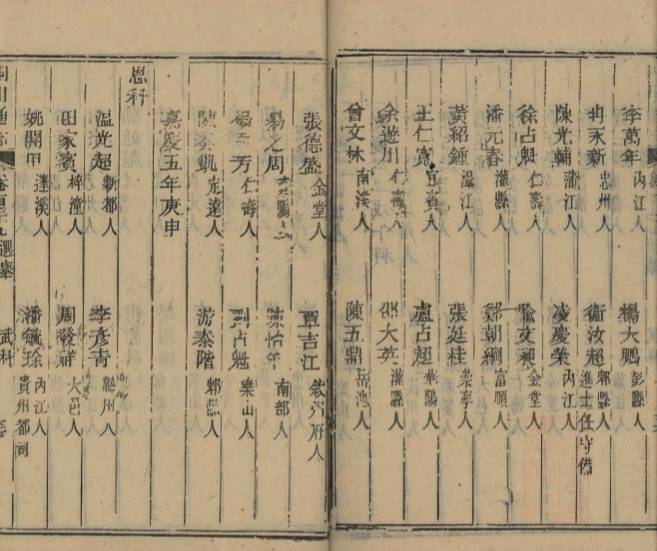 李萬年 內江人 楊大鵬 彭縣人
冉永新 忠州人 衞汝超 郫縣人 進士任守備
陳光輔 蒲江人 凌慶榮 內江人
徐占魁 仁壽人 文 金堂人
潘元春 灌縣人 鄭朝綱 富順人
黃紹鍾 溫江人 張廷桂 崇寧人
王仁寬 宜賓人 盧占超 華陽人
余遊川 仁壽人 邵大英 灌縣人
曾文林 南溪人 陳五鼎 岳池人
張德盛 金堂人 覃吉江 敘州府人
之周 陳怡年 南部人
芳 仁壽人 劉占魁 樂山人
陳 凱 達人 游泰階 郫縣人
嘉慶五年庚申
恩科
溫光超 新都人 李彥青 人
田家賓 梓潼人 周發祥 大邑人
姚開甲 蓬溪人 潘毓珍 內江人 貴州都司
四川通志 卷 選舉 武科